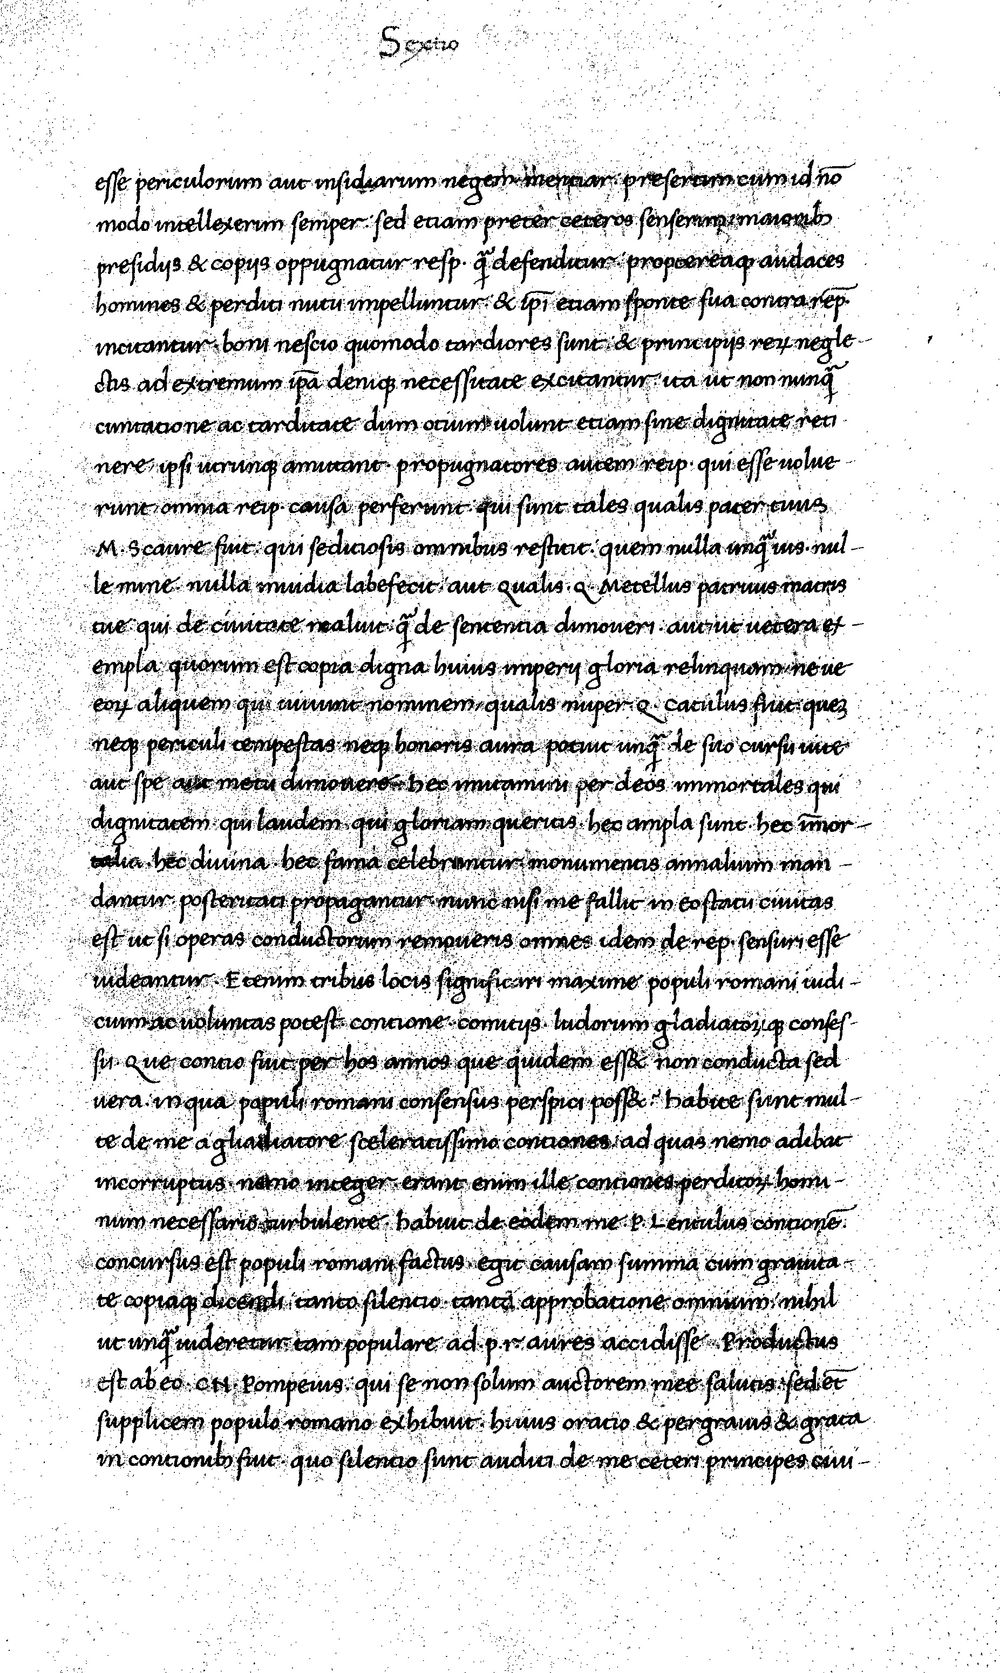 Sextio
esse periculorum aut insidiarum negem mentiar. presertim cum id nō
modo intellexerim semper. sed etiam preter ceteros senserim. maioribꝫ
presidijs & copijs oppugnatur resp. q̄ᷓ defenditur. proptereaqꝫ audaces
homines & perditi nutu impelluntur. & ip̄i etiam sponte sua contra rēp.
incitantur. boni nescio quomodo tardiores sunt. & principijs reꝝ negle-
ctis ad extremum ip̄a deniqꝫ necessitate excitantur. ita ut non nunq̄ᷓ
cuntatione ac tarditate dum otium uolunt etiam sine dignitate reti
nere ipsi utrunqꝫ amittant. propugnatores autem reip. qui esse uolue-
runt. omnia reip. causa perferunt. qui sunt tales qualis pater tuus
M. Scaure fuit. qui seditiosis omnibus restitit. quem nulla unq̄ᷓ uis. nul-
le mine. nulla inuidia labefecit. aut Qualis. Q. Metellus patruus matris
tue qui de ciuitate maluit. q̄ᷓ de sententia dimoueri. aut ut uetera ex-
empla quorum est copia digna huius imperij gloria relinquam. neue
eoꝝ aliquem qui uiuunt nominem. qualis nuper Q. Catulus fuit. queꝫ
neqꝫ periculi tempestas neqꝫ honoris aura potuit unq̄ᷓ de suo cursu uite
aut spe aut metu dimouere. hec imitamini per deos immortales qui
dignitatem. qui laudem. qui gloriam queritis. hec ampla sunt. hec im̄or-
talia. hec diuina. hec fama celebrantur. monumentis annalium man-
dantur. posteritati propagantur. nunc nisi me fallit in eo statu ciuitas
est ut si operas conductorum remoueris omnes idem de rep. sensuri esse
uideantur. Etenim tribus locis significari maxime populi romani iudi-
cium ac uoluntas potest. contione. comitijs. ludorum gladiatoꝝqꝫ conses-
su. Que contio fuit per hos annos que quidem ess& non conducta sed
uera. in qua populi romani consensus perspici poss&. habite sunt mul-
te de me a gliadiatore sceleratissimo contiones. ad quas nemo adibat
incorruptus. nemo integer. erant enim ille contiones perditoꝝ homi-
num necessario turbulente. habuit de eodem me P. Lentulus contionē.
concursus est populi romani factus. egit causam summa cum grauita-
te copiaqꝫ dicendi. tanto silentio. tanta approbatione omnium. nihil
ut unq̄ᷓ uideretur tam populare ad .p.r. aures accidisse. Productus
est ab eo. CN. Pompeius. qui se non solum auctorem mee salutis. sed et̄
supplicem populo romano exhibuit. huius oratio & pergrauis & grata
in contionibꝫ fuit. quo silentio sunt auditi de me ceteri principes ciui-